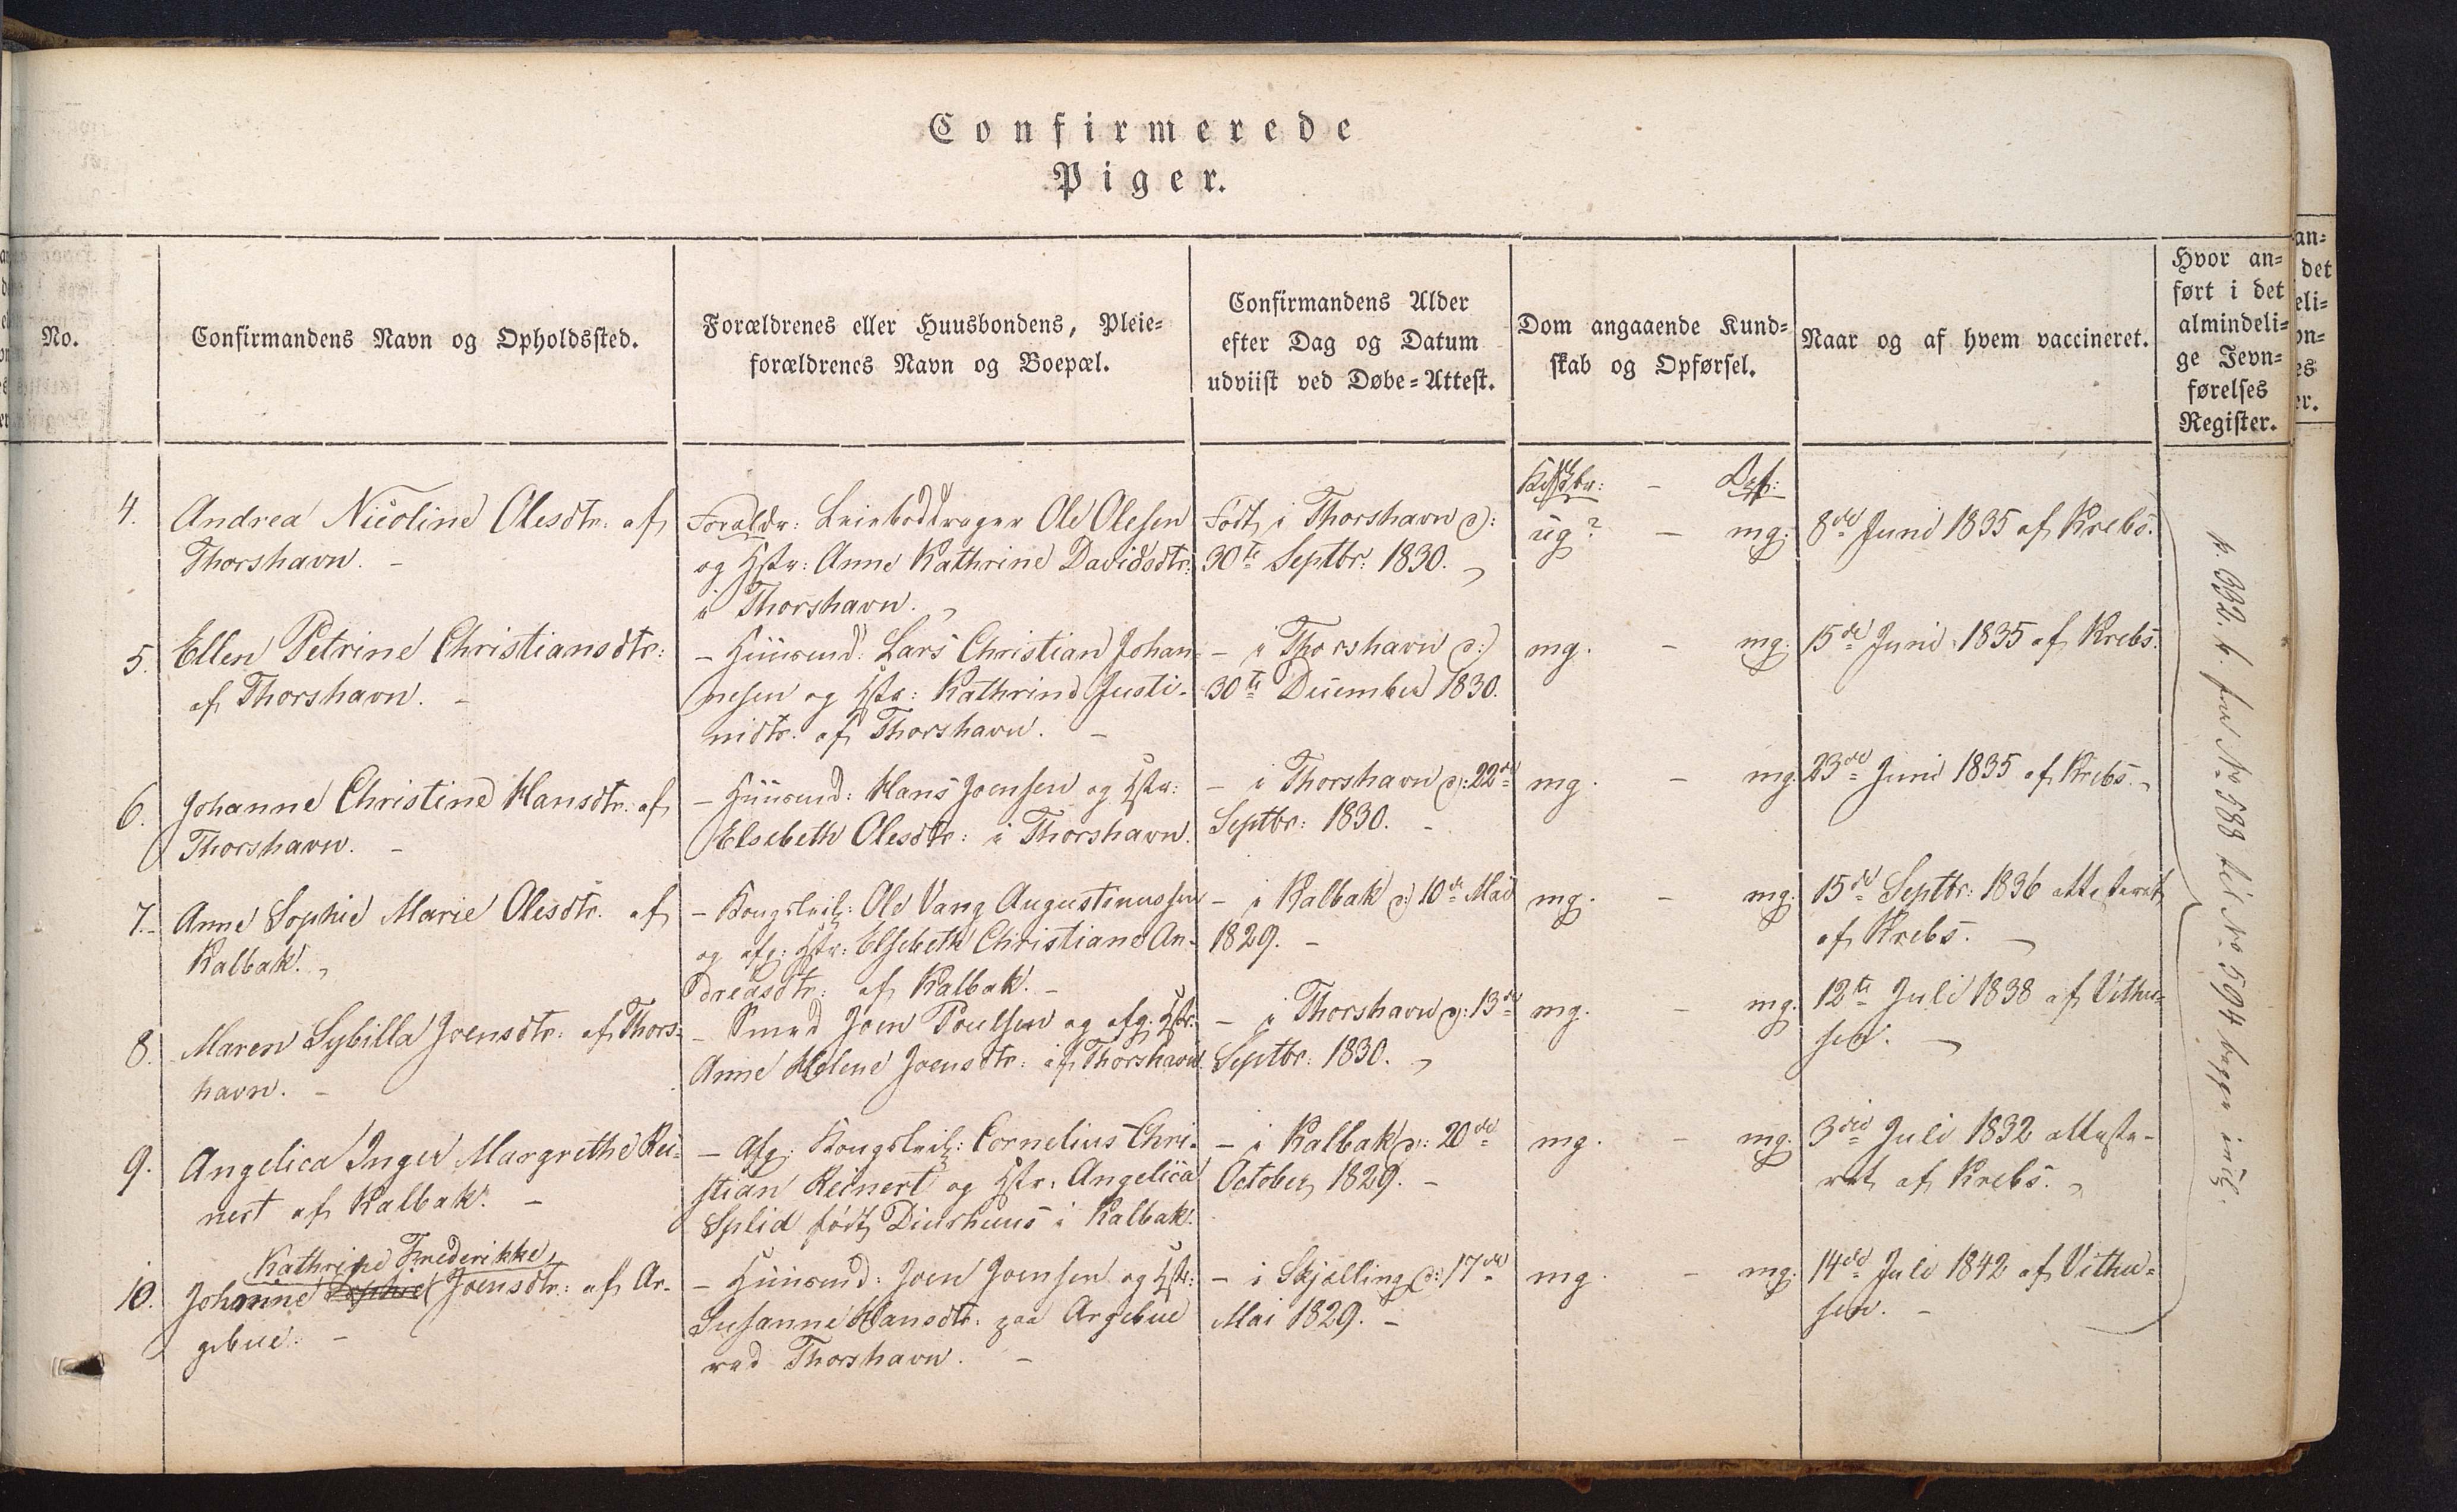 Confirmerede
Piger.
No.
Confirmandens Navn og Opholdssted.
Forældrenes eller Huusbondens, Pleie=
forældrenes Navn og Boepæl.
Confirmandens Alder
efter Dag og Datum
udviist ved Døbe=Attest.
Dom angaaende Kund=
skab og Opførsel.
Naar og af hvem vaccineret.
Hvor an=
ført i det
almindeli=
ge Jevn=
førelses
Register.
4.
Andrea Nicoline Olesdtr. af
Thorshavn. -
Forældr: Ole Olesen
og Hstr: Anne Kathrine Davidsdtr:
i Thorshavn.
Født i Thorshavn d:
30te Septbr: 1830.
ug? - mg.
8de Juni 1835 af Krebs.
5.
Ellen Petrine Christiansdtr:
af Thorshavn. -
- Huusmd: Lars Christian Johan-
nesen og Hstr: Kathrine Justi-
nidtr. af Thorshavn. -
- i Thorshavn d:
30te December 1830.
mg. - mg.
15de Juni 1835 af Krebs.
6.
Johanne Christine Hansdtr. af
Thorshavn. -
- Huusmd: Hans Joensen og Hstr:
Elsebeth Olesdtr: i Thorshavn.
- i Thorshavn d: 22de
Septbr: 1830. -
mg. - mg.
23de Juni 1835 af Krebs.
7.
Anne Sophie Marie Olesdtr. af
Kalbak.
- Kongsleil: Ole Vang Augustinussen
og afg: Hstr: Elsebeth Christiane An-
dreasdtr: af Kalbak. -
- i Kalbak d: 10de Mai
1829. -
mg. - mg.
15de Septbr: 1836 attesteret
af Krebs. -
8.
Maren Sybilla Joensdtr: af Thors-
havn. -
- Smed Joen Poulsen og afg: Hstr:
Anne Helene Joensdtr: af Thorshavn.
- i Thorshavn d: 13de
Septbr: 1830.
mg. - mg.
12te Juli 1838 af Vithu=
sen. -
9.
Angelica Inger Margrethe Rei=
nert af Kalbak. -
- Afg: Kongsleil: Cornelius Chri-
stian Reinert og Hstr: Angelica
Splid født Diurhuus i Kalbak.
- i Kalbak d: 20de
October 1829. -
mg. - mg.
3die Juli 1832 atteste-
ret af Krebs.
10.
Kathrine Frederikke
Johanne Sophie Joensdtr: af Ar-
gebue. -
- Huusmd: Joen Joensen og Hstr:
Susanne Hansdtr. paa Argebue
ved Thorshavn. -
- i Skjælling d: 17de
Mai 1829. -
mg. - mg.
14de Juli 1842 af Vithu=
sen. -
No 588 til No 594 begge incl.